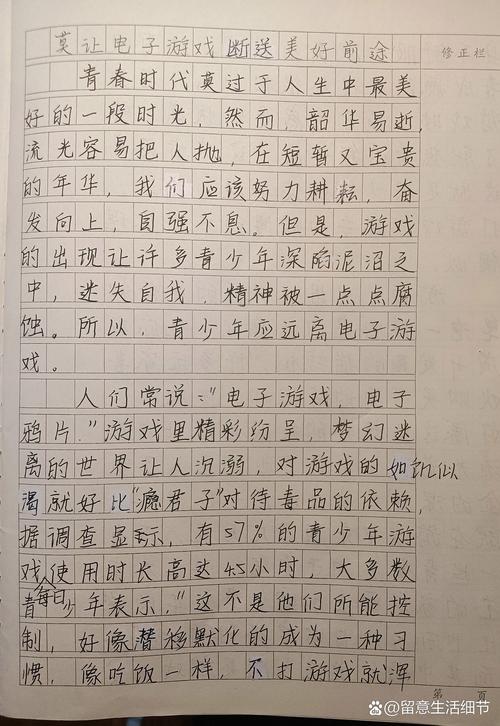 莫让电子游戏断送美好前途
修正栏
青春时代莫过于人生中最美
好的一段时光，然而，韶华易逝，
流光容易把人抛，在短暂又宝贵
的年华，我们应该努力耕耘，奋
发向上，自强不息。但是，游戏
的出现让许多青少年深陷泥沼之
中，迷失自我，精神被一点点腐
蚀。所以，青少年应远离电子游
戏。
人们常说："电子游戏，电子
鸦片."游戏里精彩纷呈，梦幻迷
离的世界让人沉溺，对游戏的如饥似
渴就好比"瘾君子"对待毒品的依赖，
据调查显示，有57%的青少年游
戏每日使用时长高达4.5小时，大多数
青少年表示，"这不是他们所能控
制，好像潜移默化的成为一种习
惯，像吃饭一样，不打游戏就浑
第 页
@留意生活细节